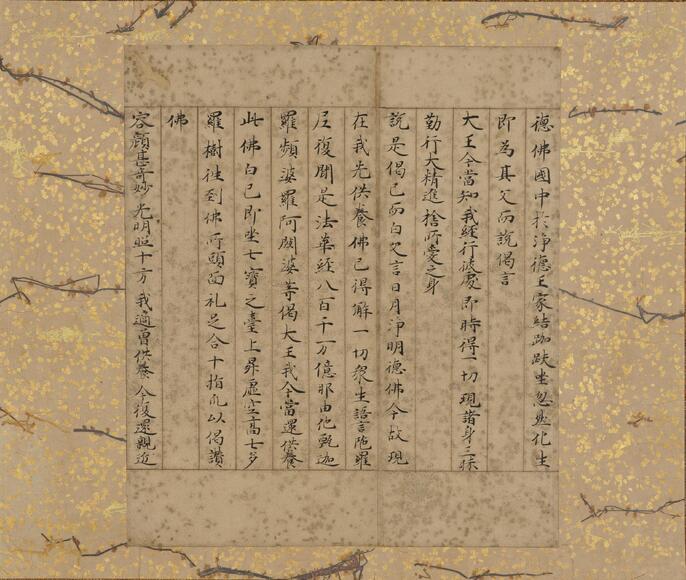 德佛國中於淨德王家結跏趺坐忽然化生
即為其父而說偈言
大王今當知我經行彼處即時得一切現諸身三昧
勤行大精進捨所愛之身
說是偈已而白父言日月淨明德佛今故現
在我先供養佛已得解一切衆生語言陀羅
尼復聞是法華經八百千万億那由他甄迦
羅頻婆羅阿閦婆等偈大王我今當還供養
此佛白已即坐七寶之臺上昇虛空高七多
羅樹往到佛所頭面礼足合十指爪以偈讚
佛
容顏甚奇妙光明照十方我適曾供養今復還親近